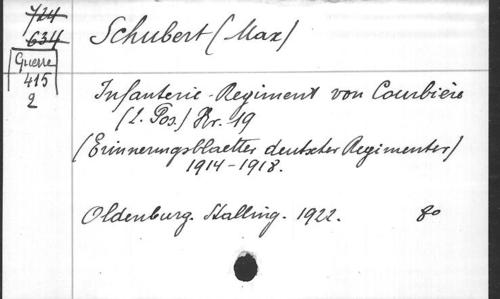 724
634
Schubert (Max)
Guerre
415
2
Infanterie-Regiment von Courbière
(2. Pos.) Nr. 19
(Erinnerungsblaetter deutscher Regimenter)
1914-1918.
Oldenburg. Stalling. 1922. 8o